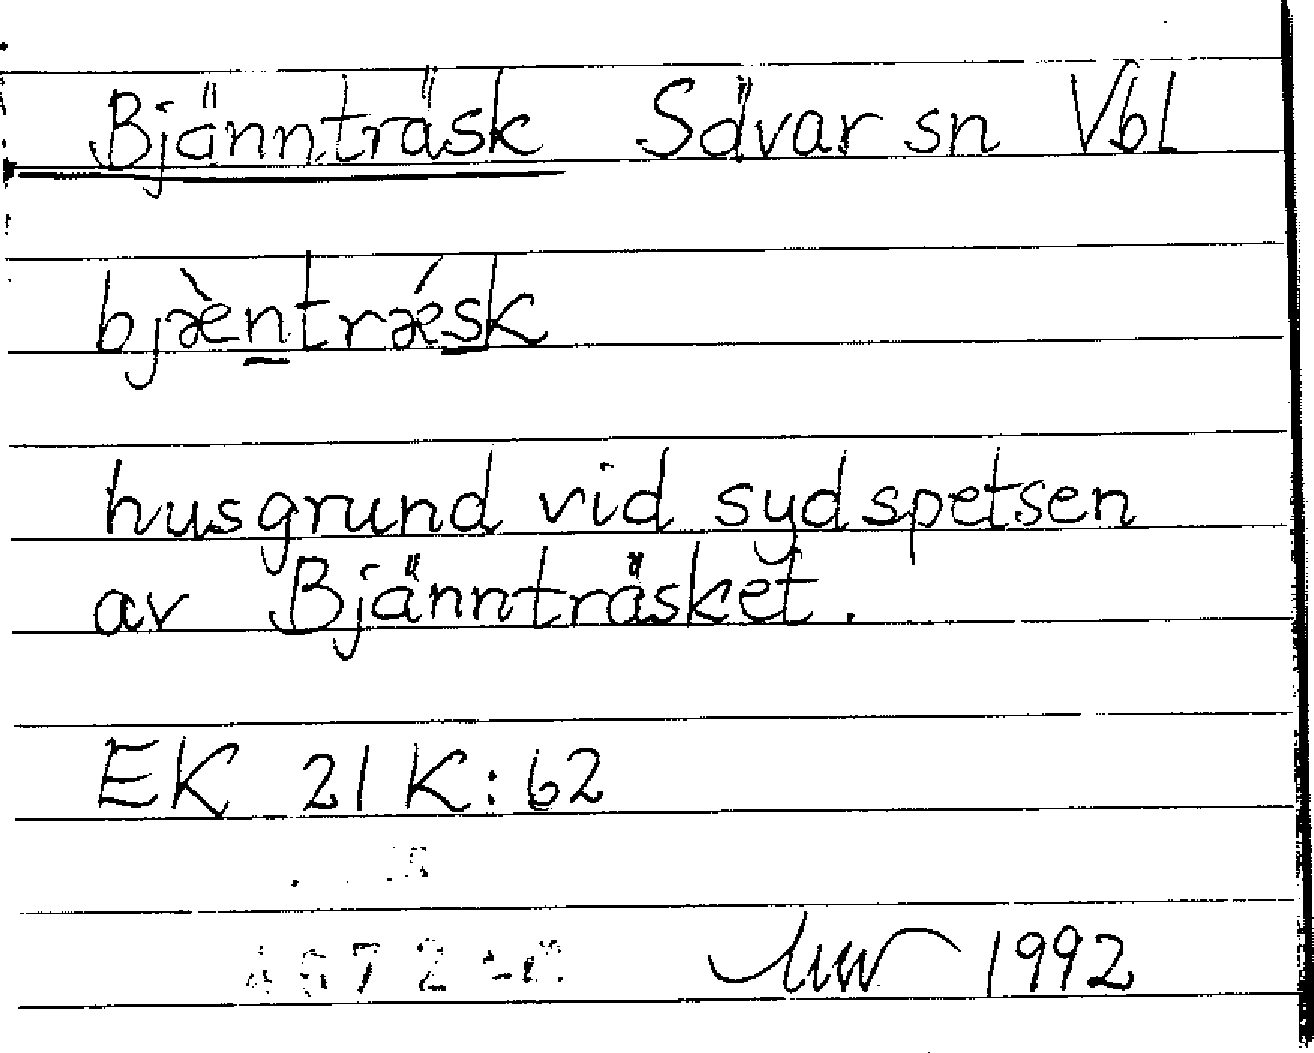 Bjännträsk Sävar sn Vbl
bjæ̀ntrǽsk
husgrund vid sydspetsen
av Bjännträsket.
EK 21 K:62
1992